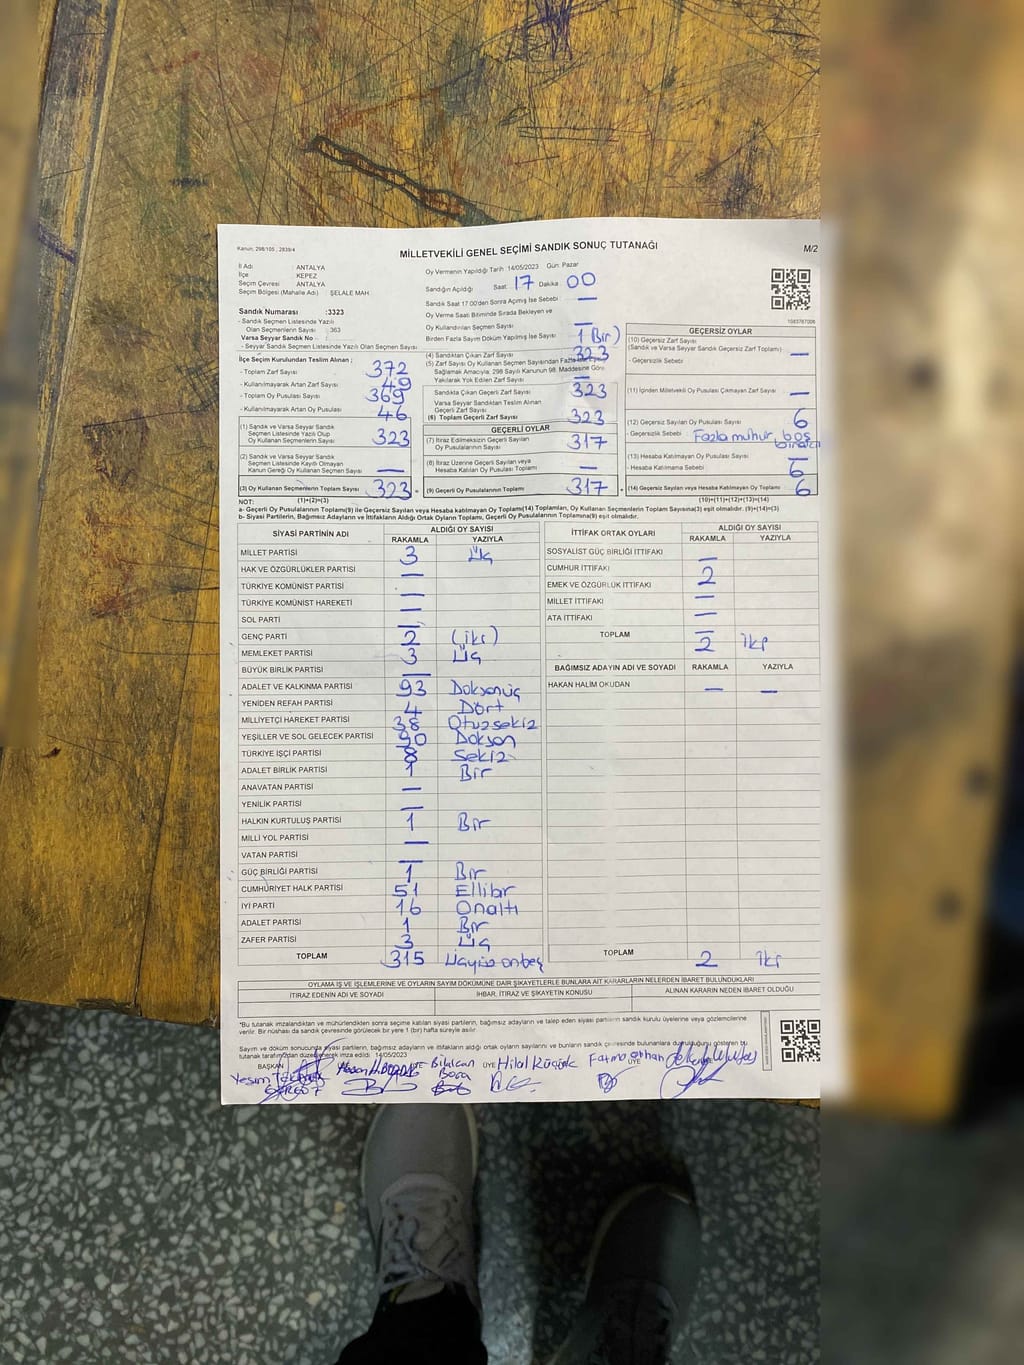 Kanun: 298/105 ; 2839/4
MİLLETVEKİLİ GENEL SEÇİMİ SANDIK SONUÇ TUTANAĞI
M/2
İl Adı : ANTALYA
İlçe KEPEZ
Seçim Çevresi : ANTALYA
Seçim Bölgesi (Mahalle Adı) : ŞELALE MAH.
Sandık Numarası :3323
- Sandık Seçmen Listesinde Yazılı
Olan Seçmenlerin Sayısı : 363
Varsa Seyyar Sandık No :
- Seyyar Sandık Seçmen Listesinde Yazılı Olan Seçmen Sayısı :
Oy Vermenin Yapıldığı Tarih 14/05/2023 Gün: Pazar
Sandığın Açıldığı Saat: 17 Dakika 00
Sandık Saat 17:00'den Sonra Açılmış İse Sebebi : —
Oy Verme Saati Bitiminde Sırada Bekleyen ve
Oy Kullandırılan Seçmen Sayısı —
Birden Fazla Sayım Döküm Yapılmış İse Sayısı : 1 (Bir)
İlçe Seçim Kurulundan Teslim Alınan ;
- Toplam Zarf Sayısı 372
- Kullanılmayarak Artan Zarf Sayısı 49
- Toplam Oy Pusulası Sayısı 369
- Kullanılmayarak Artan Oy Pusulası 46
(1) Sandık ve Varsa Seyyar Sandık
Seçmen Listesinde Yazılı Olup
Oy Kullanan Seçmenlerin Sayısı 323
(2) Sandık ve Varsa Seyyar Sandık
Seçmen Listesinde Kayıtlı Olmayan
Kanun Gereği Oy Kullanan Seçmen Sayısı —
(3) Oy Kullanan Seçmenlerin Toplam Sayısı 323 =
(4) Sandıktan Çıkan Zarf Sayısı 323
(5) Zarf Sayısı Oy Kullanan Seçmen Sayısından Fazla İse Eşitliği
Sağlamak Amacıyla; 298 Sayılı Kanunun 98. Maddesine Göre
Yakılarak Yok Edilen Zarf Sayısı —
Sandıkta Çıkan Geçerli Zarf Sayısı 323
Varsa Seyyar Sandıktan Teslim Alınan
Geçerli Zarf Sayısı
(6) Toplam Geçerli Zarf Sayısı 323
GEÇERLİ OYLAR
(7) İtiraz Edilmeksizin Geçerli Sayılan
Oy Pusulalarının Sayısı 317
(8) İtiraz Üzerine Geçerli Sayılan veya
Hesaba Katılan Oy Pusulası Toplamı —
(9) Geçerli Oy Pusulalarının Toplamı 317 +
1583787006
GEÇERSİZ OYLAR
(10) Geçersiz Zarf Sayısı
(Sandık ve Varsa Seyyar Sandık Geçersiz Zarf Toplamı) —
- Geçersizlik Sebebi
(11) İçinden Milletvekili Oy Pusulası Çıkmayan Zarf Sayısı —
(12) Geçersiz Sayılan Oy Pusulası Sayısı 6
- Geçersizlik Sebebi Fazla mühür, boş
(13) Hesaba Katılmayan Oy Pusulası Sayısı —
- Hesaba Katılmama Sebebi 6
(14) Geçersiz Sayılan veya Hesaba Katılmayan Oy Toplamı 6
NOT: (1)+(2)=(3) (10)+(11)+(12)+(13)=(14)
a- Geçerli Oy Pusulalarının Toplamı(9) ile Geçersiz Sayılan veya Hesaba katılmayan Oy Toplamı(14) Toplamları, Oy Kullanan Seçmenlerin Toplam Sayısına(3) eşit olmalıdır. (9)+(14)=(3)
b- Siyasi Partinin, Bağımsız Adayların ve İttifakların Aldığı Ortak Oyların Toplamı, Geçerli Oy Pusulalarının Toplamına(9) eşit olmalıdır.
SİYASİ PARTİNİN ADI ALDIĞI OY SAYISI
RAKAMLA YAZIYLA
MİLLET PARTİSİ 3 Üç
HAK VE ÖZGÜRLÜKLER PARTİSİ —
TÜRKİYE KOMÜNİST PARTİSİ —
TÜRKİYE KOMÜNİST HAREKETİ —
SOL PARTİ —
GENÇ PARTİ 2 (iki)
MEMLEKET PARTİSİ 3 Üç
BÜYÜK BİRLİK PARTİSİ —
ADALET VE KALKINMA PARTİSİ 93 Doksanüç
YENİDEN REFAH PARTİSİ 4 Dört
MİLLİYETÇİ HAREKET PARTİSİ 38 Otuzsekiz
YEŞİLLER VE SOL GELECEK PARTİSİ 90 Doksan
TÜRKİYE İŞÇİ PARTİSİ 8 Sekiz
ADALET BİRLİK PARTİSİ 1 Bir
ANAVATAN PARTİSİ —
YENİLİK PARTİSİ —
HALKIN KURTULUŞ PARTİSİ 1 Bir
MİLLİ YOL PARTİSİ —
VATAN PARTİSİ —
GÜÇ BİRLİĞİ PARTİSİ 1 Bir
CUMHURİYET HALK PARTİSİ 51 Ellibir
İYİ PARTİ 16 Onaltı
ADALET PARTİSİ 1 Bir
ZAFER PARTİSİ 3 Üç
TOPLAM 315 Üçyüzonbeş
İTTİFAK ORTAK OYLARI ALDIĞI OY SAYISI
RAKAMLA YAZIYLA
SOSYALİST GÜÇ BİRLİĞİ İTTİFAKI —
CUMHUR İTTİFAKI 2
EMEK VE ÖZGÜRLÜK İTTİFAKI —
MİLLET İTTİFAKI —
ATA İTTİFAKI —
TOPLAM 2 iki
BAĞIMSIZ ADAYIN ADI VE SOYADI RAKAMLA YAZIYLA
HAKAN HALİM OKUDAN — —
TOPLAM 2 iki
OYLAMA İŞ VE İŞLEMLERİNE VE OYLARIN SAYIM DÖKÜMÜNE DAİR ŞİKAYETLERLE BUNLARA AİT KARARLARIN NELERDEN İBARET BULUNDUKLARI
İTİRAZ EDENİN ADI VE SOYADI İHBAR, İTİRAZ VE ŞİKAYETİN KONUSU ALINAN KARARIN NEDEN İBARET OLDUĞU
*Bu tutanak imzalandıktan ve mühürlendikten sonra seçime katılan siyasi partilerin, bağımsız adayların ve talep eden siyasi partilerin sandık kurulu üyelerine veya gözlemcilerine
verilir. Bir nüshası da sandık çevresinde görülecek bir yere 1 (bir) hafta süreyle asılır.
Sayım ve döküm sonucunda siyasi partilerin, bağımsız adayların ve ittifakların aldığı ortak oyların sayılarını ve bunların sandık çevresinde bulunanlara duyurulduğunu gösteren bu
tutanak tarafımızdan düzenlenerek imza edildi. 14/05/2023
BAŞKAN ÜYE Bilalcan ÜYE Hilal Küçük Fatma Orhan ÜYE
Yesim Bora